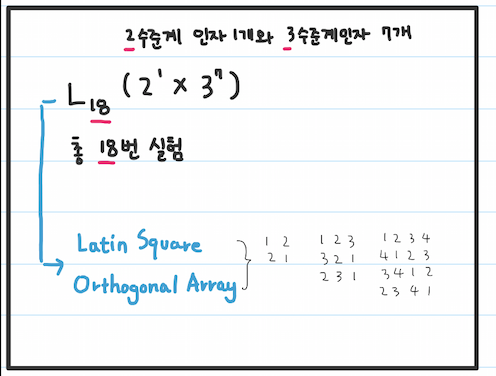 2수준계 인자 1개와 3수준계인자 7개
L18 (2¹ x 3⁷)
총 18번 실험
Latin Square
Orthogonal Array
1 2
2 1
1 2 3
3 2 1
2 3 1
1 2 3 4
4 1 2 3
3 4 1 2
2 3 4 1